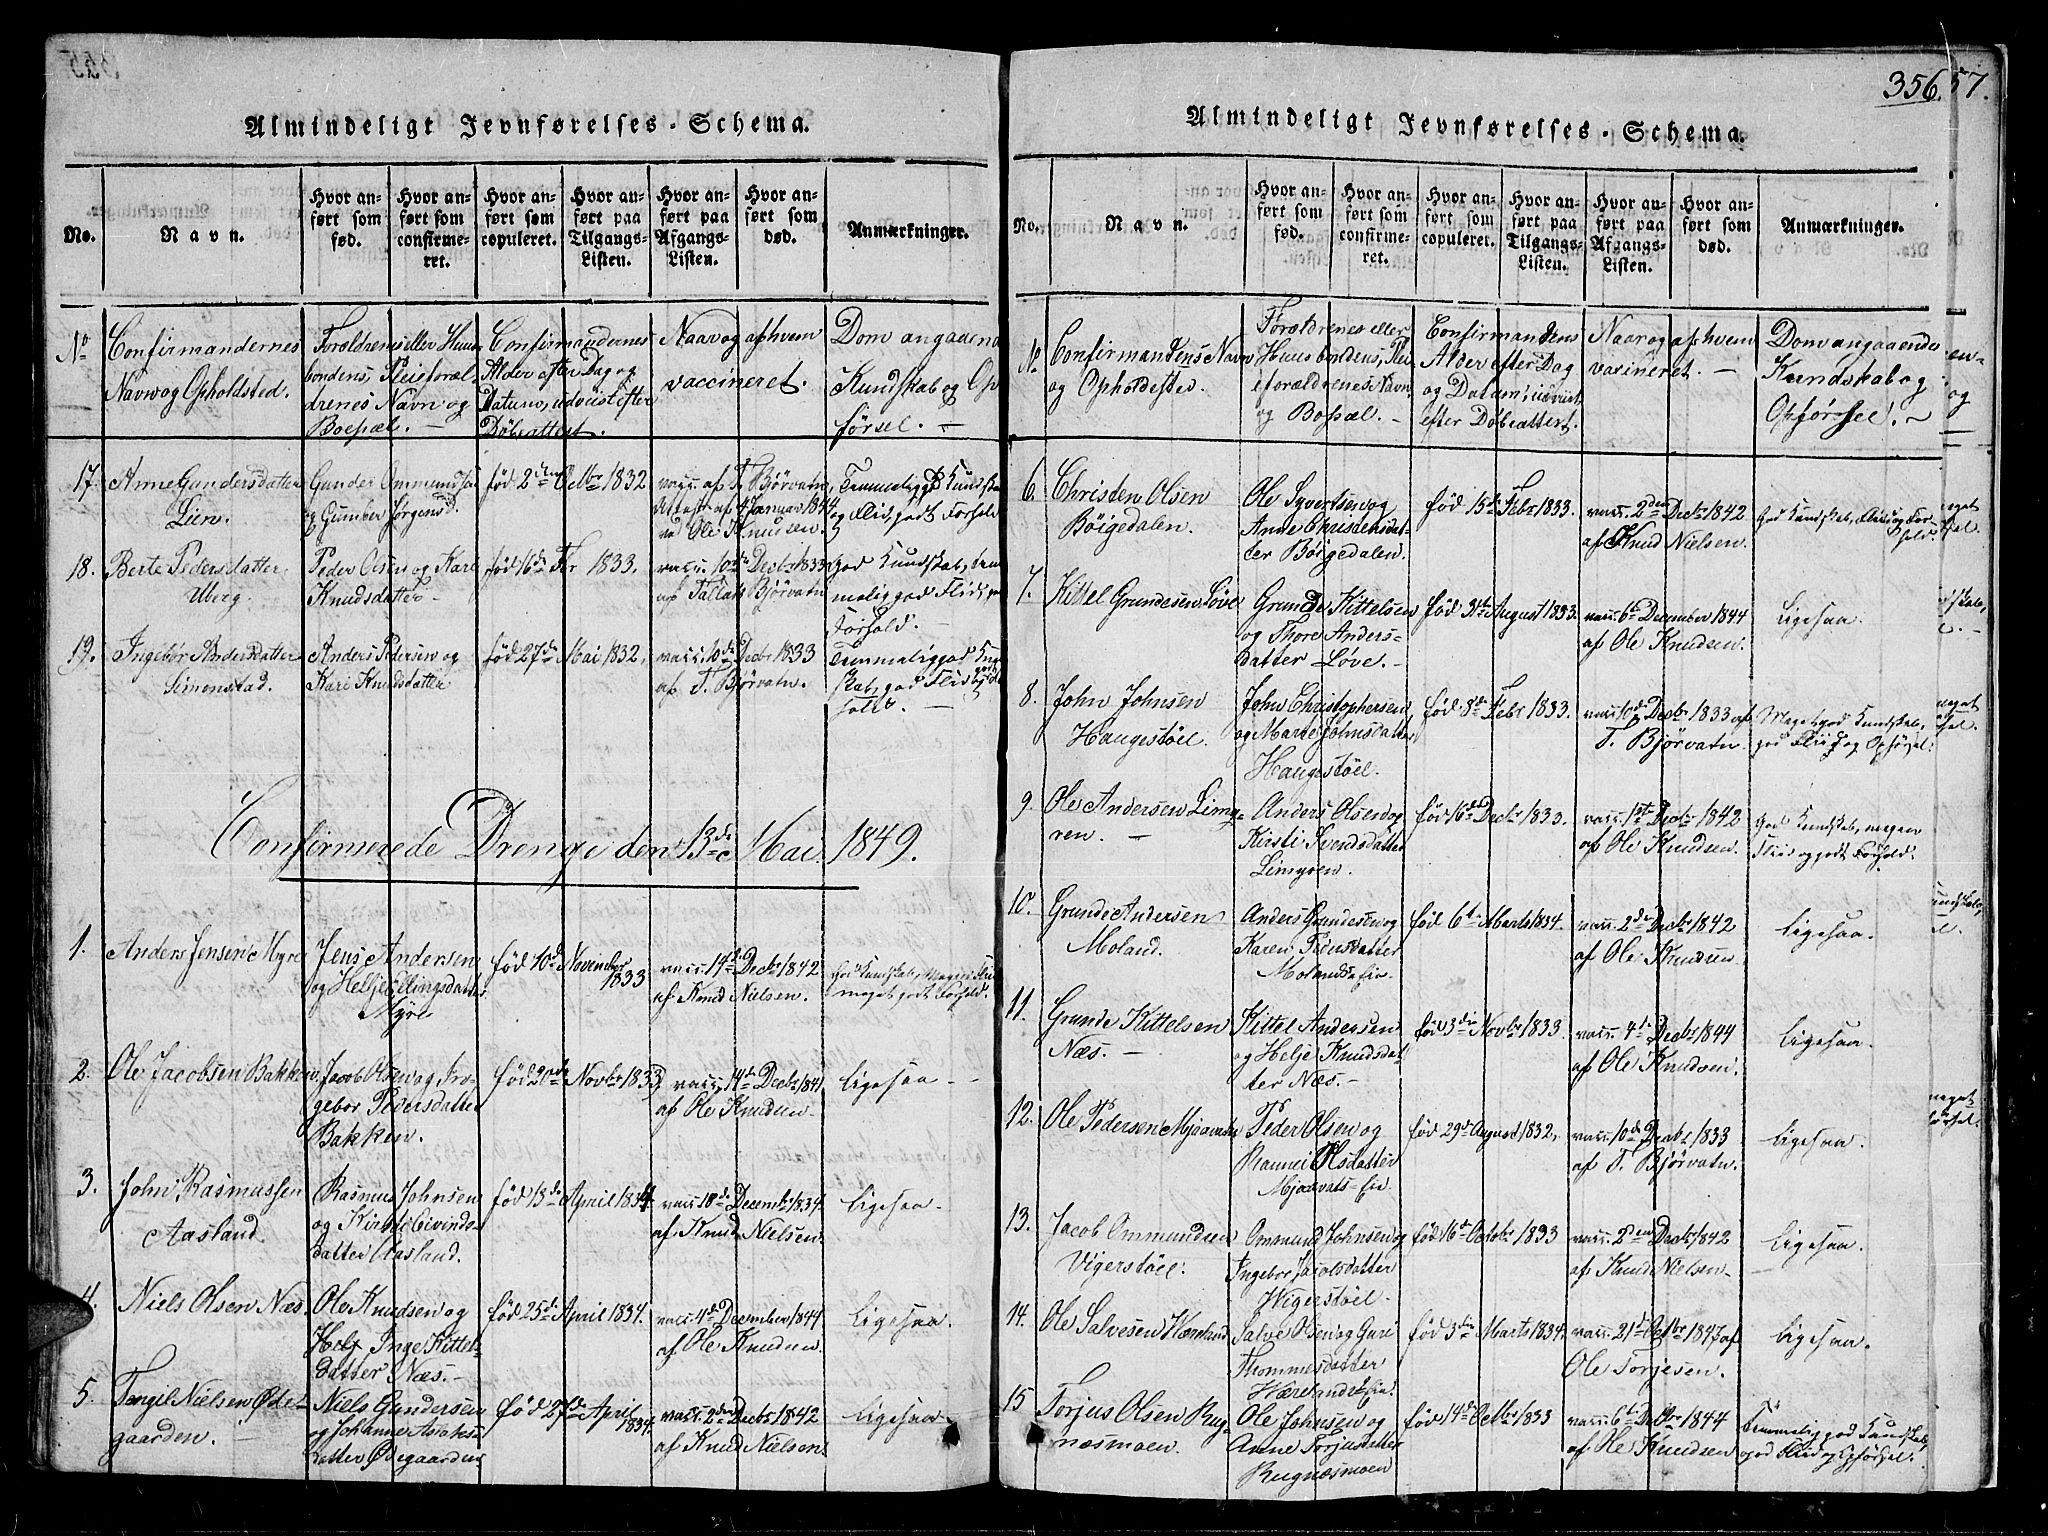 Almindeligt Jevnførelses-Schema.
No.
Navn.
Hvor anført som fød.
Hvor anført som confirmeret.
Hvor anført som copuleret.
Hvor anført paa Tilgangs-Listen.
Hvor anført paa Afgangs-Listen.
Hvor anført som død.
Anmærkninger.
No
Confirmandernes
Navn og Opholdsted.
Forældrenes eller Huus-
bondens, Pleieforæl-
drenes Navn og
Boepæl. -
Confirmandernes
Alder efter Dag og
Datum, udviist efter
Døbeattest.
Naar og af hvem
vaccineret.
Dom angaaend
Kundskab og Op
førsel. -
17.
Anne Gundersdatter
Lien.
Gunder Ommundsen
og Gunber Jørgensd
fød 2den Octbr 1832
vacc. af T. Bjørvatn
Attest af 4 Januar 1844
ved Ole Knudsen.
Temmelig god Kundska
og Flid, godt Forhold
18.
Berte Pedersdatter
Uberg.
Peder Olsen og Kari
Knudsdatter
fød 16de Febr 1833.
vacc. 10de Decbr 1833
af Tallak Bjørvatn
God Kundskab, tem
melig god Flid,
Forhold. -
19.
Ingebor Andersdatter
Simonstad.
Anders Pedersen og
Kari Knudsdatter
fød 27de Mai 1832,
vacc. 10de Decbr 1833
af T. Bjørvatn.
Temmelig god Kund
skab, god Flid
hold. -
Confirmerede Drenge den 13de Mai 1849.
1.
Anders Jensen Myre
Jens Andersen
og Helje Ellingsdatter
Myre
fød 10de November
1833
vacc. 14de Decbr 1842
af Knud Nielsen.
God Kundskab, Megen Flid
meget godt Forhold.
2.
Ole Jacobsen Bakken
Jacob Olsen og In-
gebor Pedersdatter
Bakken.
fød 30de Novbr 1833,
vacc. 14de Decbr 1841
af Ole Knudsen
Ligesaa -
3.
John Rasmussen
Aasland.
Rasmus Johnsen
og Kirsti Eivinds-
datter Aasland.
fød 13de April 1834
vacc. 18de Decembr 1834
af Knud Nielsen.
Ligesaa.
4.
Niels Olsen Næs.
Ole Knudsen og
Inge Kittels-
datter Næs. -
fød 25de April 1834.
vacc. 4de December 1844
af Ole Knudsen
Ligesaa.
5.
Tengil Nielsen Øde-
gaarden. -
Niels Gundersen
og Johanne Asлaks-
datter Ødegaarden
fød 27de April
1834.
vacc. 2den Decbr 1842
af Knud Nielsen
Ligesaa.
356.
57.
Almindeligt Jevnførelses-Schema.
No.
Navn.
Hvor anført som fød.
Hvor anført som confirmeret.
Hvor anført som copuleret.
Hvor anført paa Tilgangs-Listen.
Hvor anført paa Afgangs-Listen.
Hvor anført som død.
Anmærkninger.
No
Confirmantens Navn
og Opholdsted.
Forældrenes eller
Huusbondens, Plei-
eforældrenes Navn
og Bopæl. -
Confirmantens
Alder efter Dag
og Datum, udviist
efter Døbeattest.
Naar og af hvem
vaccineret. -
Dom angaaende
Kundskab og
Opførsel. -
6.
Christen Olsen
Böigedalen.
Ole Syvertsen og
Anne Christensdat-
ter Böigedalen.
fød 15de Febr 1833.
vacc. 2den Decbr 1842
af Knud Nielsen.
God Kundskab, Flid og For-
hold.
7.
Kittel Grundesen Løve
Grunde Kittelsen
og Thore Anders-
datter Løve. -
fød 31te August 1833.
vacc. 6te December 1844
af Ole Knudsen.
Ligesaa.
8.
John Johnsen
Haugestöel.
John Christophersen
og Marte Johnsdatter
Haugestöel.
fød 8de Febr 1833.
vacc. 10de Decbr 1833 af
T. Bjørvatn.
Meget god Kundskab,
god Fliid og Opførsel.
9.
Ole Andersen Limy-
ren. -
Anders Olsen og
Kirsti Svendsdatter
Limyren.
fød 16de Decbr 1833.
vacc. 1ste Decbr 1842
af Ole Knudsen.
God Kundskab, megen
Fliid og godt Forhold.
10.
Grunde Andersen
Moland.
Anders Grundesen og
Karen Pedersdatter
Molandseie
fød 6te Marts 1834.
vacc. 2de Decbr 1842
af Ole Knudsen
Ligesaa.
11.
Grunde Kittelsen
Næs. -
Kittel Andersen
og Helje Knudsdat-
ter Næs. -
fød 3die Novbr 1833.
vacc. 4de Decbr 1844
af Ole Knudsen.
Ligesaa.
12.
Ole Pedersen Mjøavatn
Peder Olsen og
Olsdatter
Mjøavats-Eie
fød 29de August 1832,
vacc. 10de Decbr 1833
af T. Bjørvatn.
Ligesaa.
13.
Jacob Ommundsen
Vigerstöel.
Ommund Johnsen og
Ingebor Jacobsdatter
Wigerstöel.
fød 16de Octobr 1833
vacc. 2den Decbr 1842
af Knud Nielsen
Ligesaa.
14.
Ole Salvesen Wæreland
Salve Olsen og Guri
Thommesdatter
Wærelands Eie.
fød 3die Marts 1834.
vacc. 21de Octbr 1847 af
Ole Torjesen.
Ligesaa.
15
Torjus Olsen Rug-
næsmoen.
Ole Johnsen og
Anne Torjusdatter
Rugnæsmoen
fød 14de Octbr 1833
vacc. 6te Decbr 1844
af Ole Knudsen
Temmelig god Kundskab,
god Flid og Opførsel.